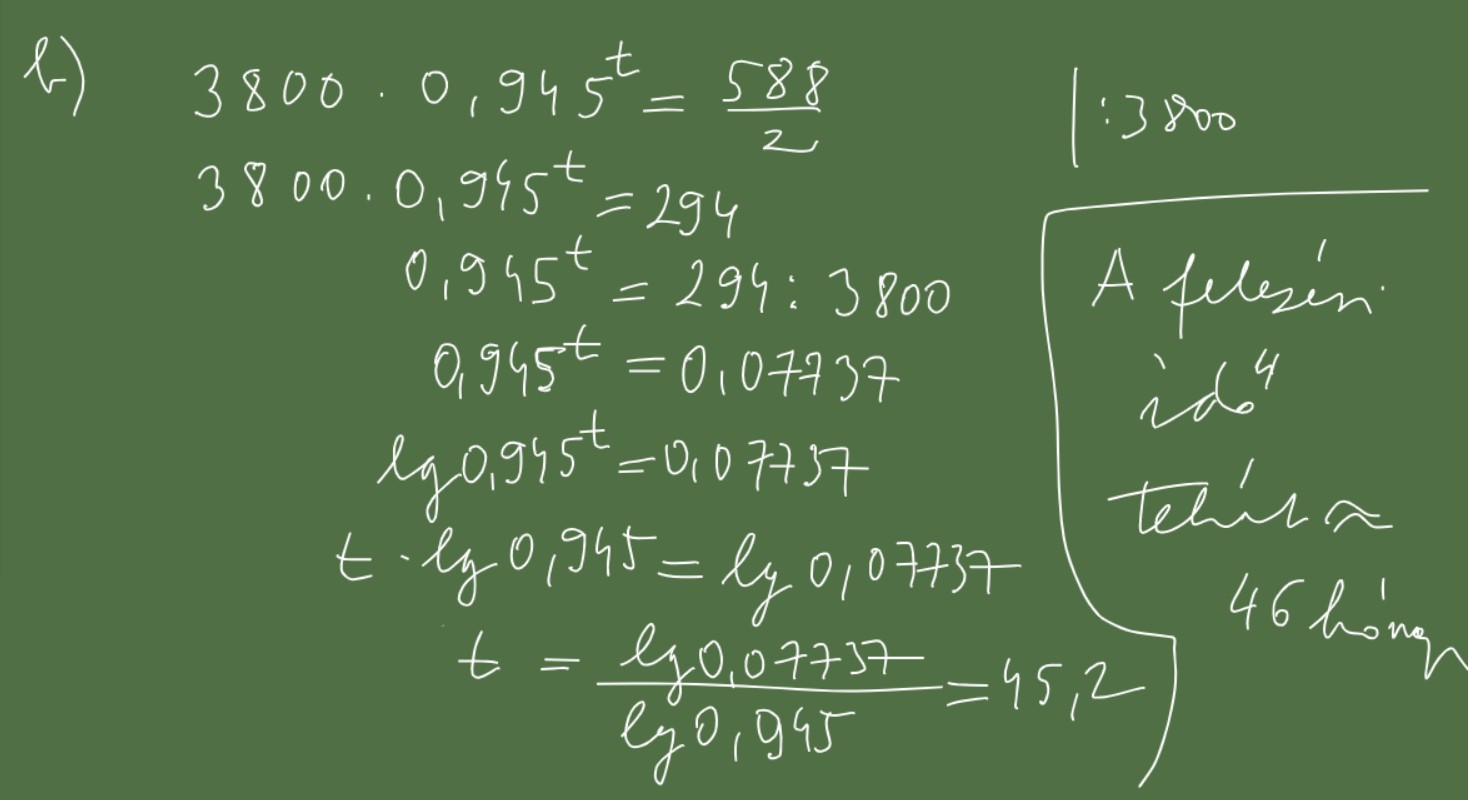 b) 3800 · 0,945^t = 588/2 |:3800
3800 · 0,945^t = 294
0,945^t = 294 : 3800
0,945^t = 0,07737
lg 0,945^t = 0,07737
t · lg 0,945 = lg 0,07737
t = lg 0,07737 / lg 0,945 = 45,2
A felezési
idő
tehát ≈
46 hónap